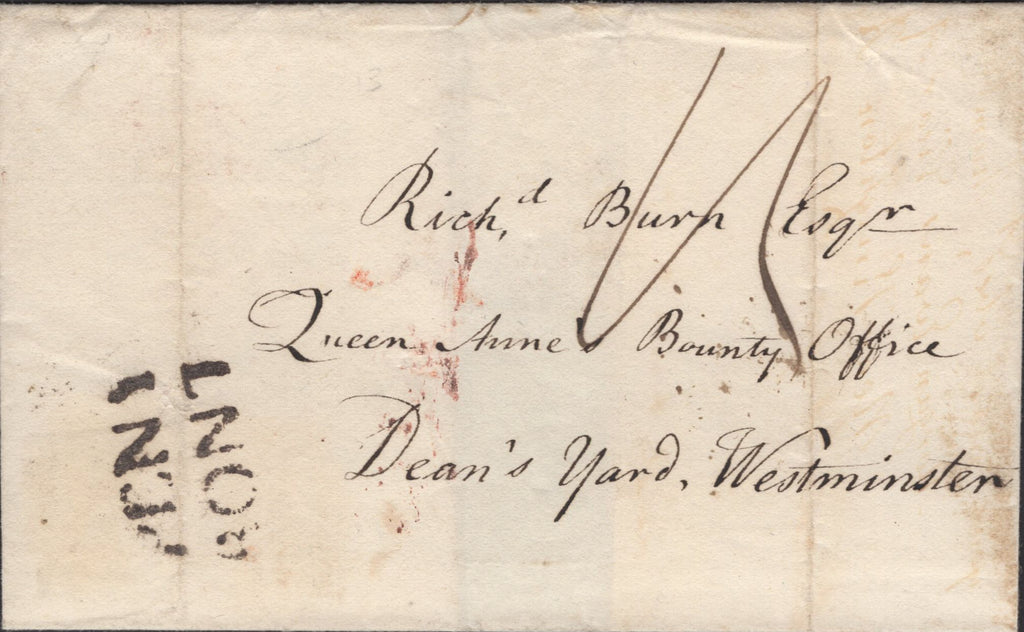 Rich.d Burn Esqr
Queen Anne's Bounty Office
Dean's Yard, Westminster